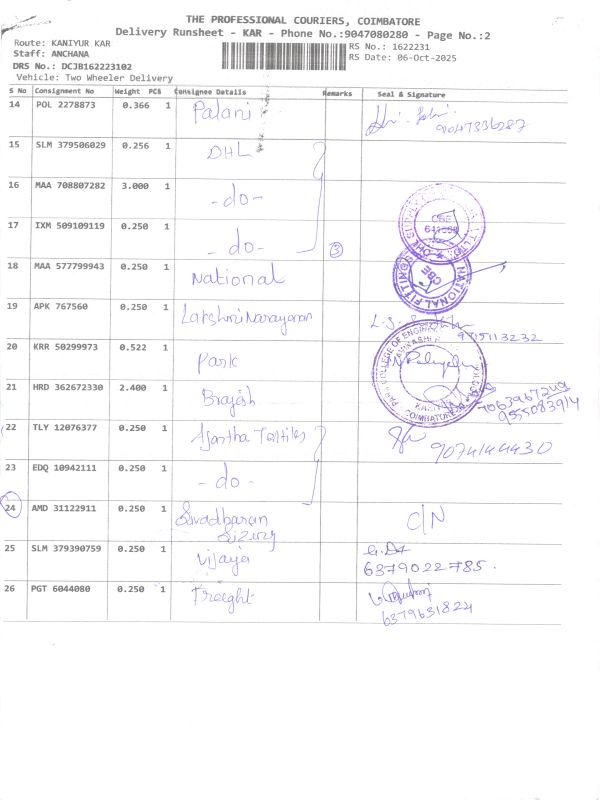 THE PROFESSIONAL COURIERS, COIMBATORE
Delivery Runsheet - KAR - Phone No.:9047080280 - Page No.:2
Route: KANIYUR KAR
RS No.: 1622231
Staff: ANCHANA
RS Date: 06-Oct-2025
DRS No.: DCJB162223102
Vehicle: Two Wheeler Delivery
S No Consignment No Weight PCS Consignee Details Remarks Seal & Signature
14 POL 2278873 0.366 1 Palani 9047336287
15 SLM 379506029 0.256 1 DHL
16 MAA 708807282 3.000 1 -do-
17 IXM 509109119 0.250 1 -do- 3
18 MAA 577799943 0.250 1 National NATIONAL FITTINGS CBE
19 APK 767560 0.250 1 Lakshmi Narayanan 9715113232
20 KRR 50299973 0.522 1 Park COLLEGE OF ENGINE COIMBATORE
21 HRD 362672330 2.400 1 Brajesh 7063967249
9555083914
22 TLY 12076377 0.250 1 Ajantha Textiles 9074144430
23 EDQ 10942111 0.250 1 -do-
24 AMD 31122911 0.250 1 C/N
25 SLM 379390759 0.250 1 Vijaya
6379022785.
26 PGT 6044080 0.250 1 Freeght
6379631824